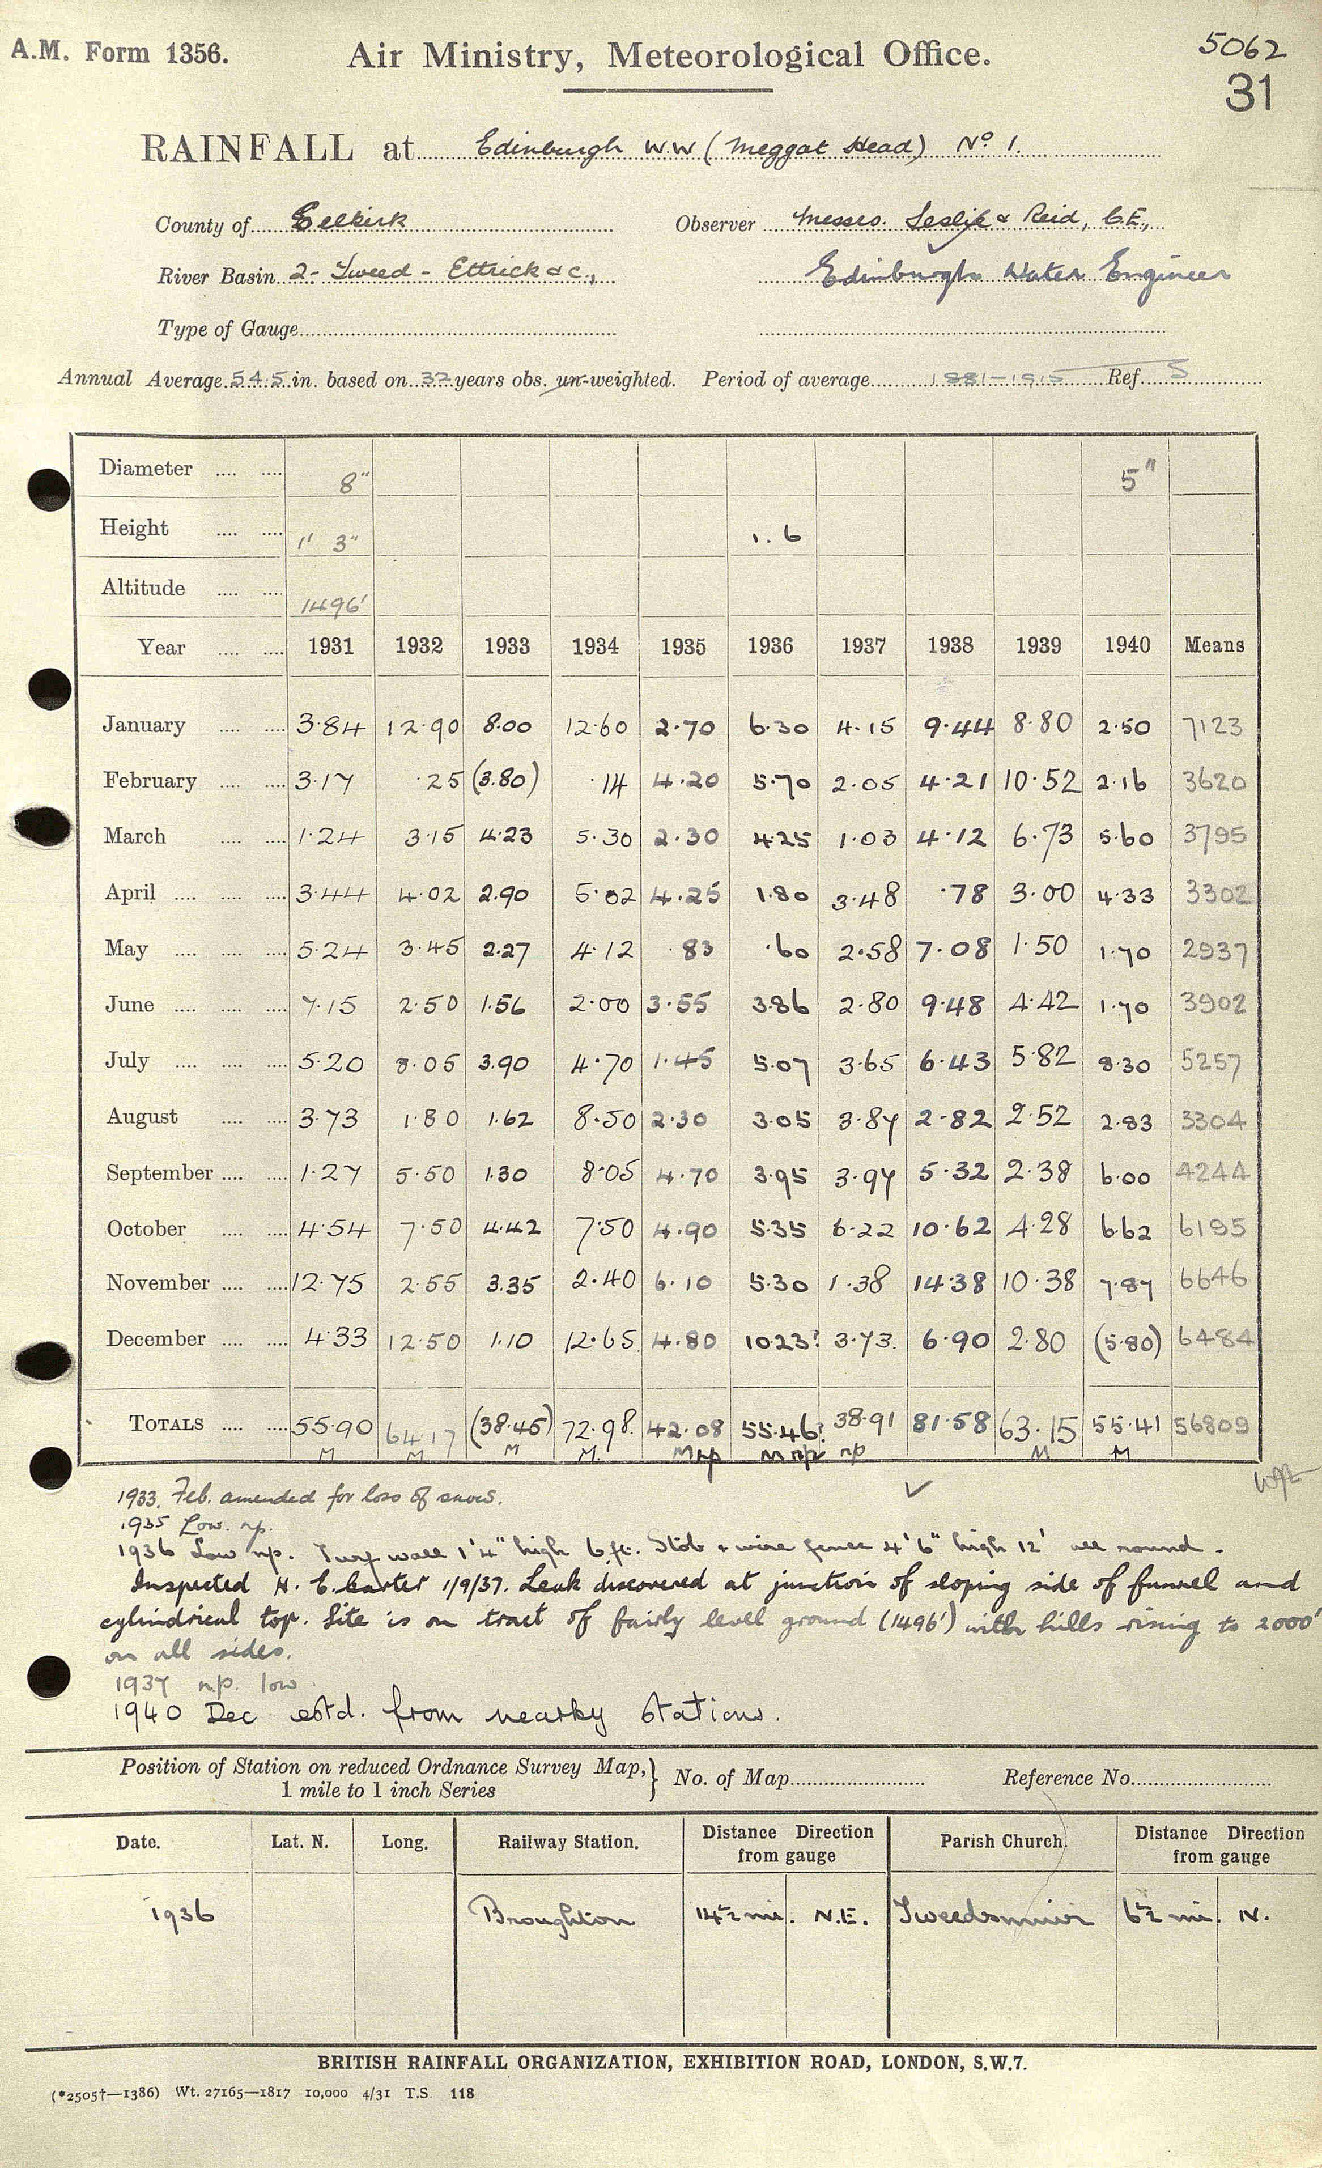 A.M. Form 1356. Air Ministry, Meteorological Office. 5062
31
RAINFALL at Edinburgh W.W (Meggat Head) No. 1.
County of Selkirk Observer Messrs. Leslie & Reid, C.E.,
River Basin 2 - Tweed - Ettrick &c., Edinburgh Water Engineer
Type of Gauge
Annual Average 54.5 in. based on 32 years obs. un-weighted. Period of average 1881-1915 Ref. 5
Diameter 8" 5"
Height 1' 3" 1.6
Altitude 1496'
Year 1931 1932 1933 1934 1935 1936 1937 1938 1939 1940 Means
January 3.84 12.90 8.00 12.60 2.70 6.30 4.15 9.44 8.80 2.50 7123
February 3.17 .25 (3.80) .14 4.20 5.70 2.05 4.21 10.52 2.16 3620
March 1.24 3.15 4.23 5.30 2.30 4.25 1.03 4.12 6.73 5.60 3795
April 3.44 4.02 2.90 5.02 4.25 1.80 3.48 .78 3.00 4.33 3302
May 5.24 3.45 2.27 4.12 .83 .60 2.58 7.08 1.50 1.70 2937
June 7.15 2.50 1.56 2.00 3.55 3.86 2.80 9.48 4.42 1.70 3902
July 5.20 8.05 3.90 4.70 1.45 5.07 3.65 6.43 5.82 8.30 5257
August 3.73 1.80 1.62 8.50 2.30 3.05 3.87 2.82 2.52 2.83 3304
September 1.27 5.50 1.30 8.05 4.70 3.95 3.97 5.32 2.38 6.00 4244
October 4.54 7.50 4.42 7.50 4.90 5.35 6.22 10.62 4.28 6.62 6195
November 12.75 2.55 3.35 2.40 6.10 5.30 1.38 14.38 10.38 7.87 6646
December 4.33 12.50 1.10 12.65 4.80 10.23? 3.73 6.90 2.80 (5.80) 6484
TOTALS 55.90 64.17 (38.45) 72.98 42.08 55.46? 38.91 81.58 63.15 55.41 56809
M M M M M np M np np M M
1933. Feb. amended for loss of snow.
1935 Low. np.
1936 Low np. Turf wall 1'4" high 6 ft. Stob & wire fence 4'6" high 12' all round.
Inspected H. E. Carter 1/9/37. Leak discovered at junction of sloping side of funnel and
cylindrical top. Site is on tract of fairly level ground (1496') with hills rising to 2000'
on all sides.
1937 np. low
1940 Dec estd. from nearby stations.
Position of Station on reduced Ordnance Survey Map, 1 mile to 1 inch Series } No. of Map Reference No.
Date. Lat. N. Long. Railway Station. Distance Direction from gauge Parish Church. Distance Direction from gauge
1936 Broughton 14½ mi. N.E. Tweedsmuir 6½ mi. N.
BRITISH RAINFALL ORGANIZATION, EXHIBITION ROAD, LONDON, S.W.7.
(*2505†—1386) Wt. 27165—1817 10,000 4/31 T.S. 118